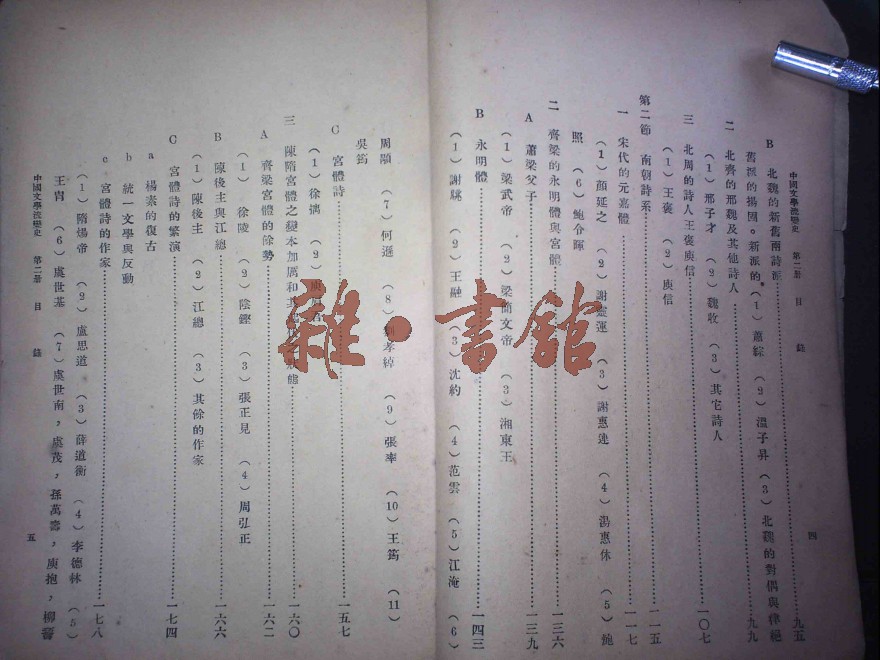 中國文學流變史 第二册 目錄
四
B 北魏的新舊南詩派……九五
舊派的揚固。新派的(1)蕭綜 (2)溫子昇 (3)北魏的對偶與律絕……九九
二 北齊的邢魏及其他詩人
(1)邢子才 (2)魏收 (3)其它詩人
三 北周的詩人王褒庾信……一〇七
(1)王褒 (2)庾信
第二節 南朝詩系……一一五
一 宋代的元嘉體……一一七
(1)顏延之 (2)謝靈運 (3)謝惠連 (4)湯惠休 (5)鮑
照 (6)鮑令暉
二 齊梁的永明體與宮體……一三六
A 蕭梁父子……一三九
(1)梁武帝 (2)梁簡文帝 (3)湘東王
B 永明體……一四三
(1)謝朓 (2)王融 (3)沈約 (4)范雲 (5)江淹 (6)
周顒 (7)何遜 (8)劉孝綽 (9)張率 (10)王筠 (11)
吳筠
C 宮體詩……一五七
(1)徐摛 (2)庾肩吾
三 陳隋宮體之變本加厲和其狀態……一六〇
A 齊梁宮體的餘勢……一六二
(1)徐陵 (2)陰鏗 (3)張正見 (4)周弘正
B 陳後主與江總……一六六
(1)陳後主 (2)江總 (3)其餘的作家
C 宮體詩的繁演……一七四
a 楊素的復古
b 統一文學與反動
c 宮體詩的作家……一七八
(1)隋煬帝 (2)盧思道 (3)薛道衡 (4)李德林 (5)
王冑 (6)虞世基 (7)虞世南,虞茂,孫萬壽,庾抱,柳䛒
中國文學流變史 第二册 目錄
五
雜·書館